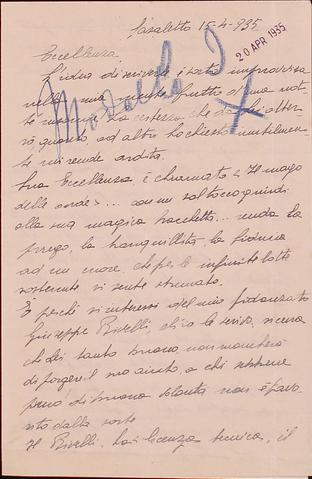 Casaletto 15-4-935
20 APR 1935
Eccellenza!
L'idea di è sorta improvvisa
nella mia mente frutto d'una not-
te insonne. La certezza che da
quanto ad altri ho chiesto inutilmen-
te mi rende ardita.
Sua Eccellenza è chiamato "Il mago
delle onde"... con un sol tocco quindi
alla sua magica bacchetta... renda la
prego, la tranquillità, la fiducia
ad un cuore che per le infinite lotte
sostenute si sente stremato.
È perchè si interessi del mio fidanzato
Giuseppe Rivelli, ch'io le scrivo, sicura
che Lei tanto buono, non mancherà
di porgere il suo aiuto, a chi sebbene
pieno di buona volontà non è favo-
rito dalla sorte
Il Rivelli, ha licenza tecnica, il